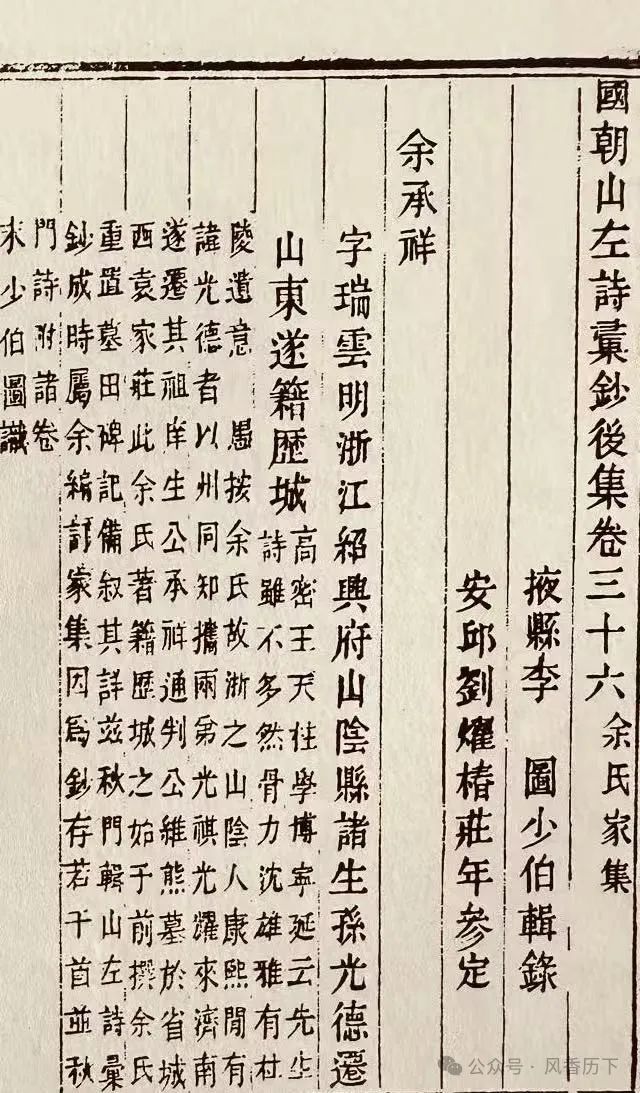 國朝山左詩彙鈔後集卷三十六 余氏家集
掖縣李 圖少伯輯錄
安邱劉燿椿莊年參定
余承祥
字瑞雲明浙江紹興府山陰縣諸生孫光德遷
山東遂籍歷城
高密王天柱學博寧延云先生
詩雖不多然骨力沈雄雅有杜
陵遺意 愚按余氏故浙之山陰人康熙間有
諱光德者以州同知攜兩弟光祺光燿來濟南
遂遷其祖庠生公承祥通判公維熊墓於省城
西袁家莊此余氏著籍歷城之始于前撰余氏
重置墓田碑記備叙其詳茲秋門輯山左詩彙
鈔成時屬余編訂家集因爲鈔存若干首並秋
門詩附諸卷
末少伯圖識
公众号·风香历下